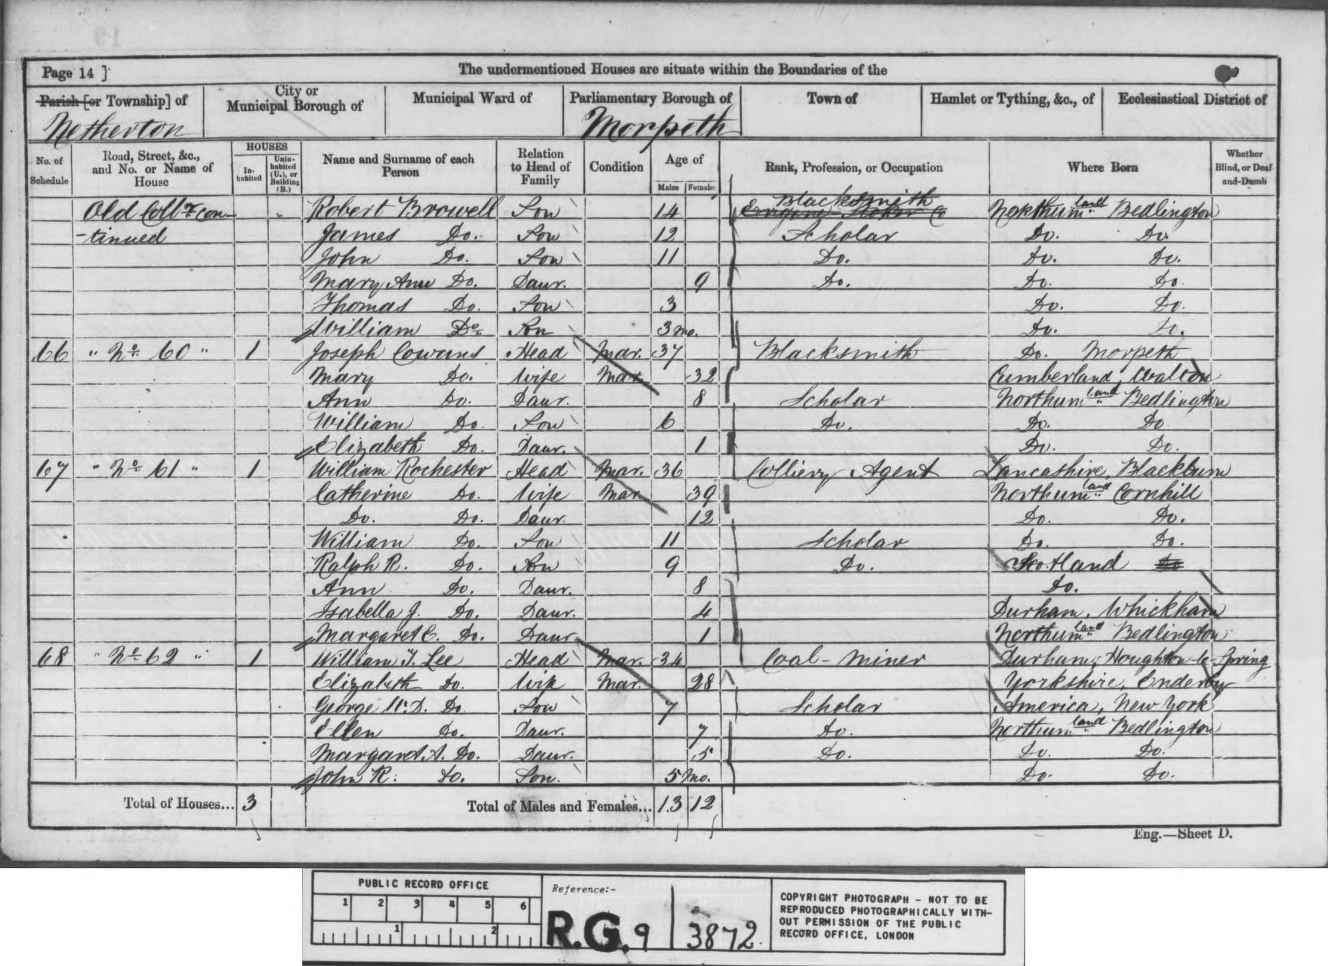 Page 14 ]
The undermentioned Houses are situate within the Boundaries of the
Parish [or Township] of
City or Municipal Borough of
Municipal Ward of
Parliamentary Borough of
Town of
Hamlet or Tything, &c., of
Ecclesiastical District of
Netherton
Morpeth
No. of Schedule
Road, Street, &c., and No. or Name of House
HOUSES
In-habited
Unin-habited (U.), or Building (B.)
Name and Surname of each Person
Relation to Head of Family
Condition
Age of
Males
Females
Rank, Profession, or Occupation
Where Born
Whether Blind, or Deaf-and-Dumb
Blacksmith
Old Coll.y con- Robert Browell Son 14 Engine Stoker Northumland Bedlington
-tinued James Do. Son 12 Scholar Do. Do
John Do. Son 11 Do. Do. Do.
Mary Ann Do. Daur. 9 Do. Do. Do.
Thomas Do. Son 3 Do. Do.
William Do Son 3 mo. Do. Do.
66 " No. 60 " 1 Joseph Cowans Head Mar. 37 Blacksmith Do. Morpeth
Mary Do. Wife Mar. 32 Cumberland, Walton
Ann Do. Daur. 8 Scholar Northumland Bedlington
William Do. Son 6 Do. Do. Do
Elizabeth Do. Daur. 1 Do. Do.
67 " No. 61 " 1 William Rochester Head Mar. 36 Colliery Agent Lancashire, Blackburn
Catherine Do. Wife Mar. 39 Northumland Cornhill
Do. Do. Daur. 12 Do. Do.
William Do. Son 11 Scholar Do. Do.
Ralph R. Do. Son 9 Do. Scotland Do
Ann Do. Daur. 8 Do.
Isabella J. Do. Daur. 4 Durham, Whickham
Margaret C. Do. Daur. 1 Northumland Bedlington
68 " No. 62 " 1 William T. Lee Head Mar. 34 Coal-Miner Durham, Houghton-le-Spring
Elizabeth Do. Wife Mar. 28 Yorkshire, Enderby
George W. D. Do. Son 7 Scholar America, New York
Ellen Do. Daur. 7 Do. Northumland Bedlington
Margaret A. Do. Daur. 5 Do. Do. Do.
John R. Do. Son. 5 Mo. Do. Do.
Total of Houses... 3 Total of Males and Females... 13 12
Eng.—Sheet D.
PUBLIC RECORD OFFICE
1 2 3 4 5 6
1 2
Reference:-
R.G. 9 3872
COPYRIGHT PHOTOGRAPH - NOT TO BE
REPRODUCED PHOTOGRAPHICALLY WITH-
OUT PERMISSION OF THE PUBLIC
RECORD OFFICE, LONDON